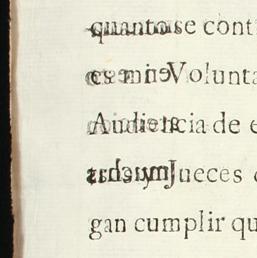 se cont
es mi Volunta
Audiencia de e
Jueces
gan cumplir qu